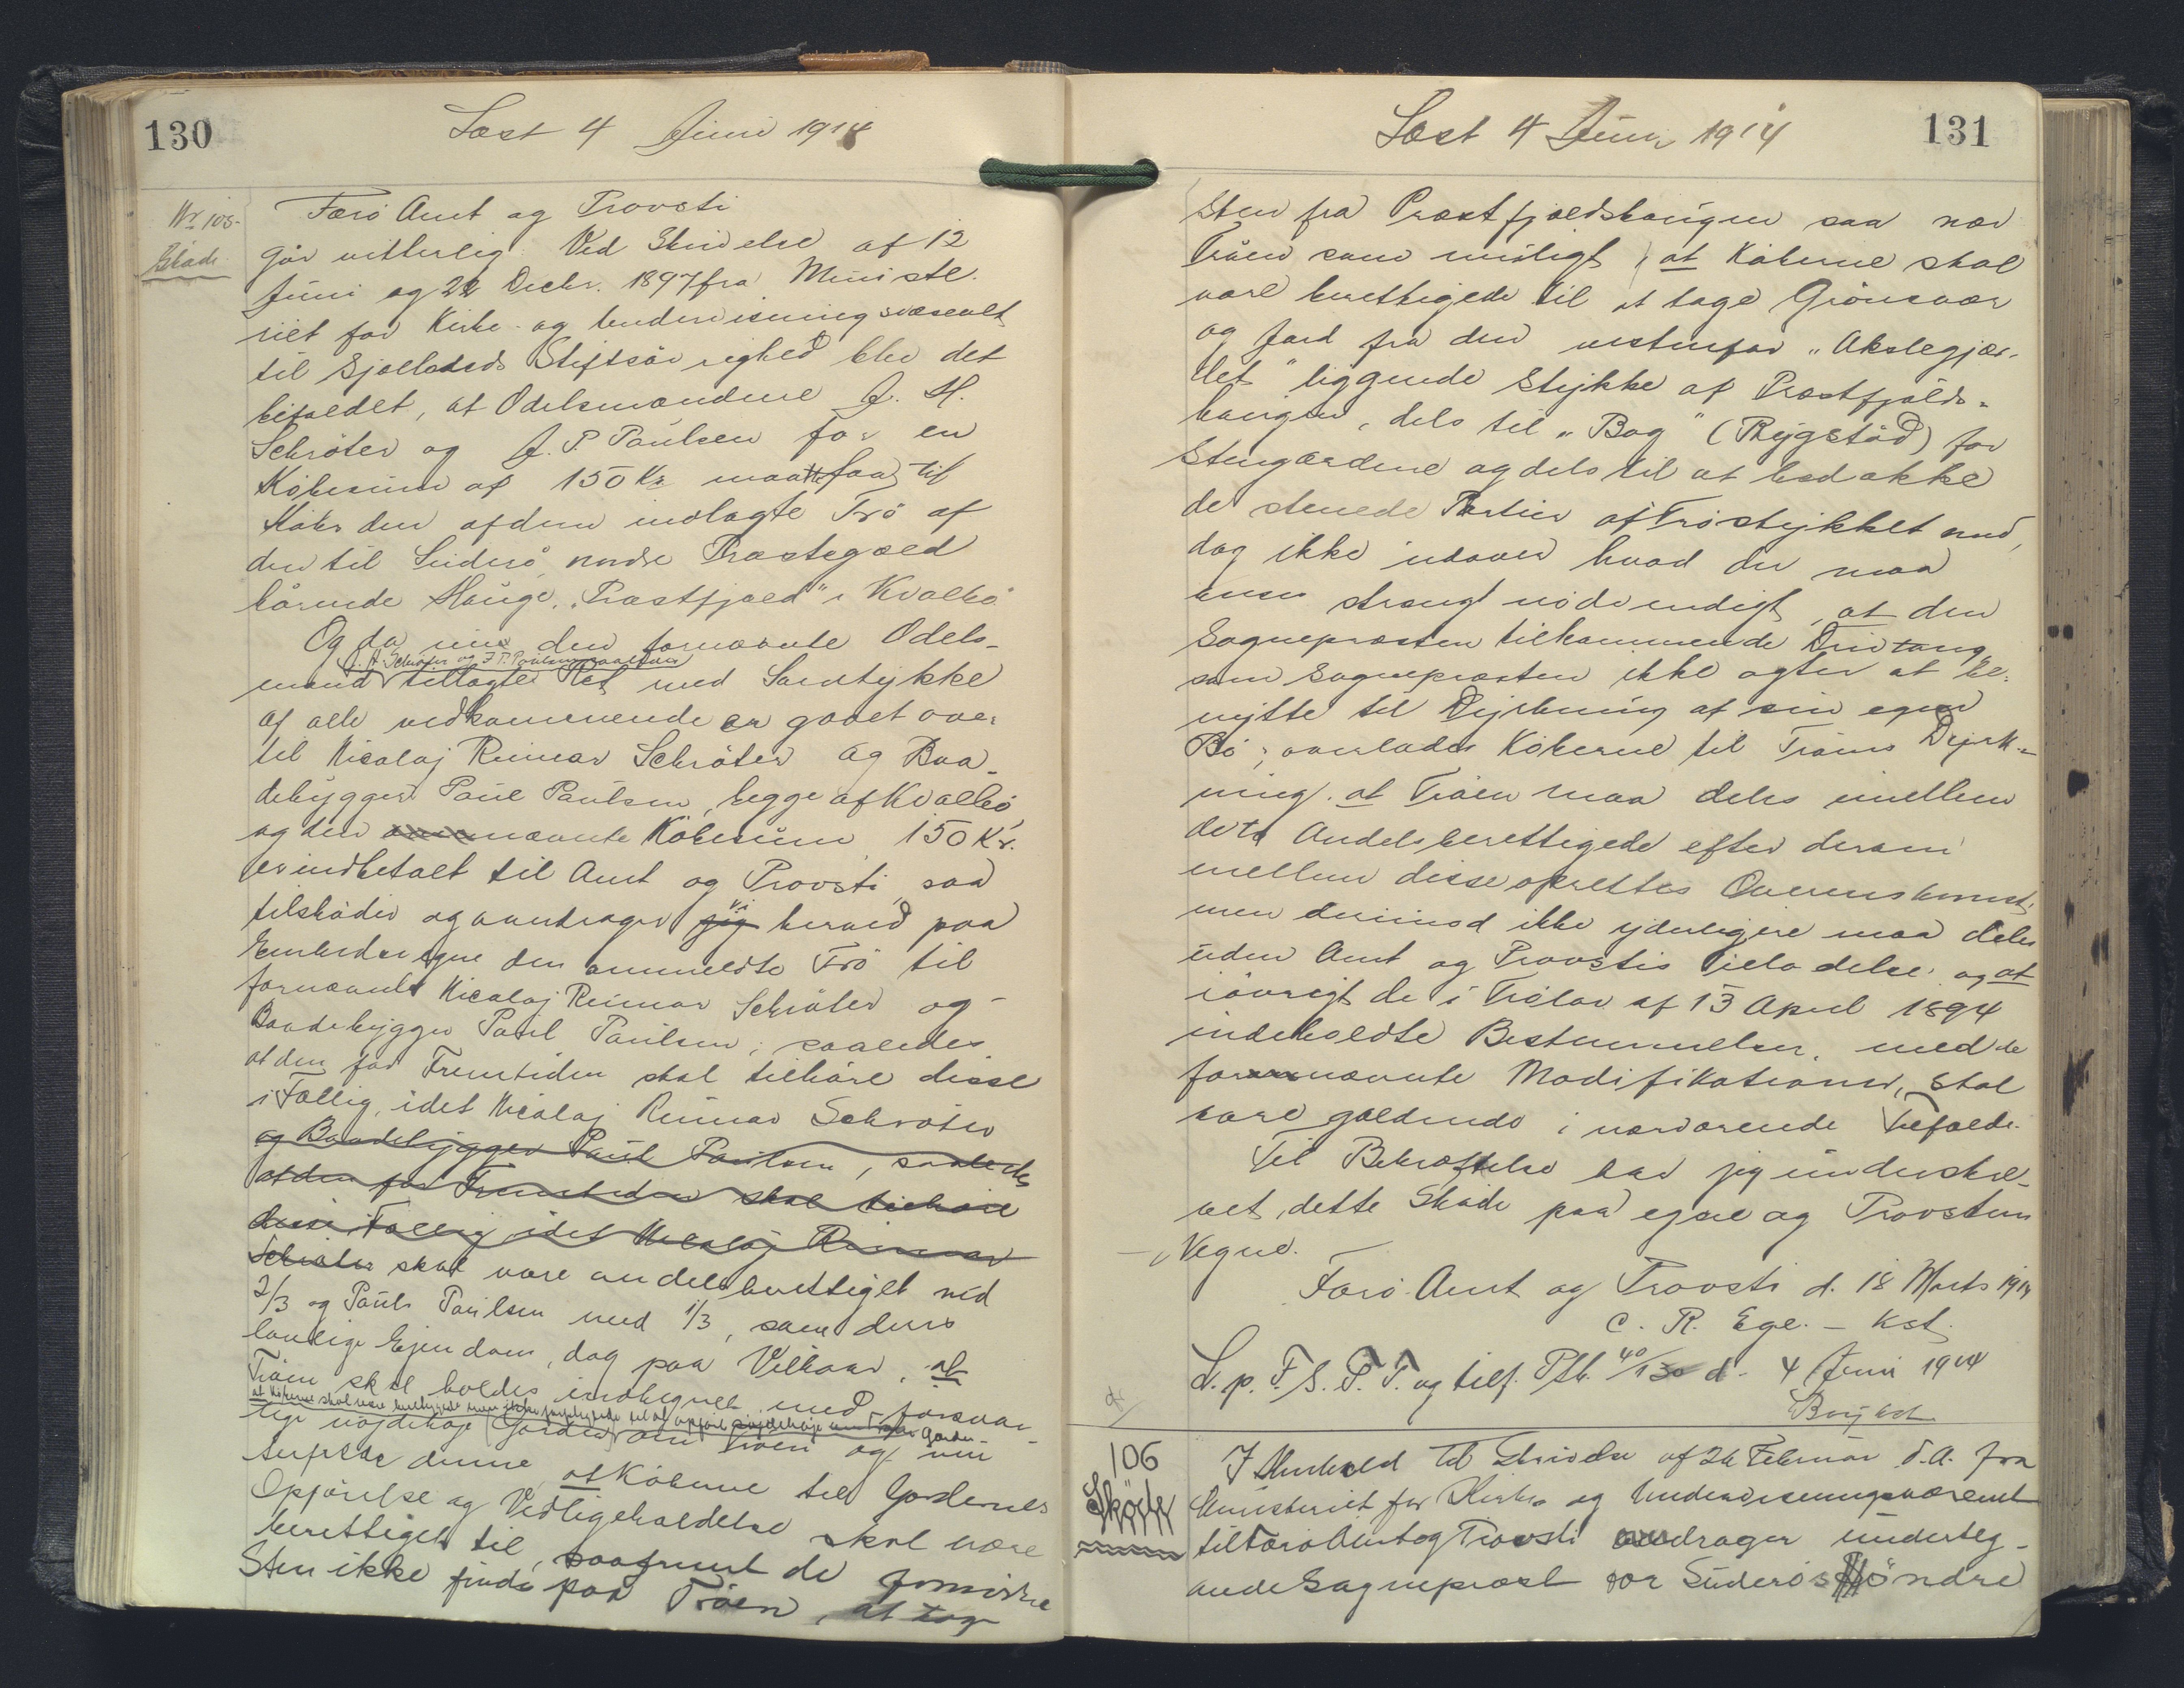 130
Læst 4 Juni 1914
Nr 105.
Skøde.
Færö Amt og Provsti
gör vitterlig: Ved Skrivelse af 12
Juni og 22 Decbr. 1897 fra Ministe-
riet for Kirke- og Undervisningsvæsenet
til Sjællands Stiftsövrighed blev det
bifaldet, at Odelsmændene J. H.
Schröter og J. P. Poulsen for en
Köbesum af 150 Kr maatte faa til
Köbs den af dem indlagte Trö af
den til Suderö nordre Præstegæld
hörende Hauge, "Præstfjæld" i Kvalbö.
Og da nu den fornævnte Odels-
J. H. Schröter og J. P. Poulsen saaledes
mænd tillagte Ret med Samtykke
af alle vedkommende er gaaet over
til Nicolaj Reimar Schröter og Baa-
debygger Poul Poulsen, begge af Kvalbö
og den nævnte Köbesum 150 Kr.
er indbetalt til Amt og Provsti, saa
tilsköder og overdrager jeg vi herved paa
Embedsvegne den anmeldte Trö til
fornævnte Nicolaj Reimar Schröter og
Baadebygger Poul Poulsen, saaledes
at den for Fremtiden skal tilhöre disse
i Fællig, idet Nicolaj Reimar Schröter
og Baadebygger Poul Poulsen, saaledes
at den for Fremtiden skal tilhöre
disse i Fællig idet Nicolaj Reimar
Schröter skal være andelsberettiget med
2/3 og Pouls Poulsen med 1/3, som deres
lovlige Ejendom, dog paa Vilkaar, at
Tröen skal holdes indhegnet med forsvar-
at Köberne skal være berettigede men ikke forpligtede til at opföre Gærder
lige nöjdehöje Gærder om Tröen og
denne, at Köberne til Gærdernes
Opförelse og Vedligeholdelse skal være
berettiget til, saafremt de fornödne
Sten ikke findes paa Tröen, at tage
Læst 4 Juni 1914
131
Sten fra Præstfjældshaugen saa nær
Tröen som muligt; at Köberne skal
være berettigede til at tage Grönsvær
og Jord fra den vestenfor "Akslegjær-
det" liggende Stykke af Præstfjælds-
haugen, dels til "Bag" (Rygstöd) for
Stengærderne og dels til at bedække
de stenede Partier af Tröstykket med,
dog ikke udover hvad der maa
anses strengt nödvendigt, at den
Sognepræsten tilkommende Drivtang,
som Sognepræsten ikke agter at be-
nytte til Dyrkning af sin egen
Bö, overlades Köberne til Tröens Dyrk-
ning. at Tröen maa deles imellem
de to Andelsberettigede efter derom
mellem disse oprettes Overenskomst,
men derimod ikke yderligere maa deles
uden Amt og Provstis Tilladelse. og at
iövrigt de i Trölov af 13 April 1894
indeholdte Bestemmelser, med de
fornævnte Modifikationer, skal
være gældende i nærværende Tilfælde.
Til Bekræftelse har jeg underskre-
vet dette Skøde paa egne og Provstens
Vegne.
Færö Amt og Provsti d. 18 Marts 1914
C. R. Ege. – Kst.
L. p. F. S. T. T. og tilf. Ptb. 40/130 d. 4 Juni 1914
106
Skøde
I Henhold til Skrivelse af 26 Februar d. A. fra
Ministeriet for Kirke og Undervisningsvæsenet
til Færö Amt og Provsti overdrager underteg-
nede Sognepræst for Suderös Söndre